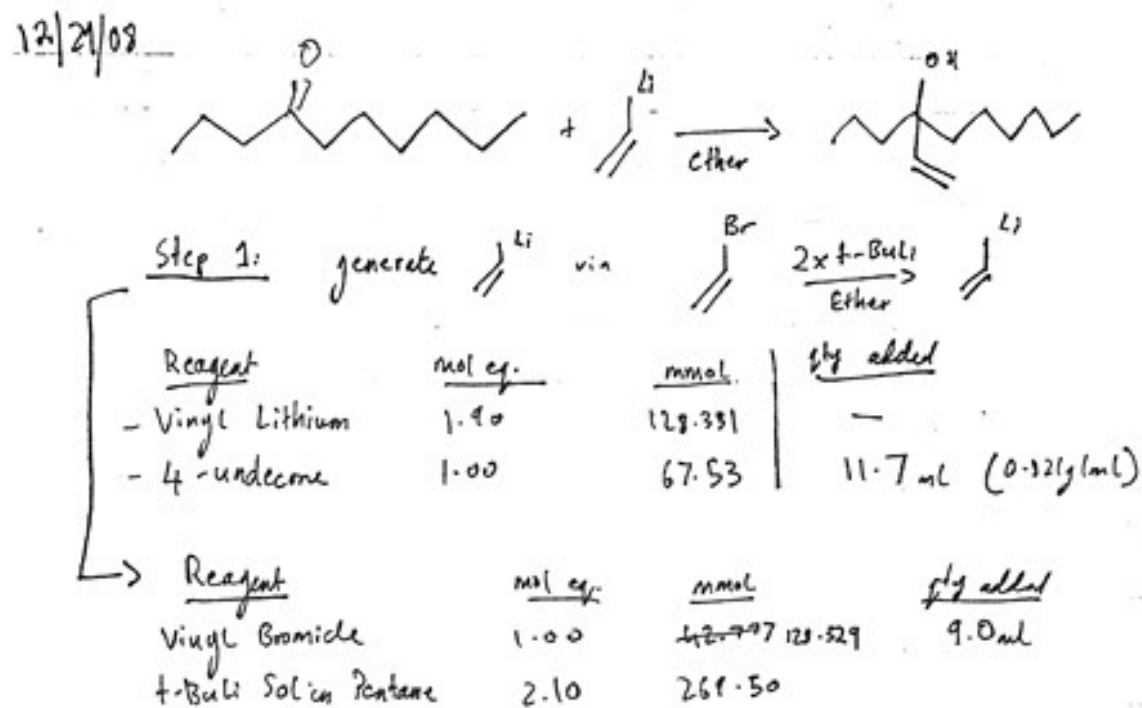 12/29/08
O
Li
OH
+
Ether
Step 1: generate Li via Br 2x t-BuLi Li
Ether
Reagent mol eq. mmol qty added
- Vinyl Lithium 1.90 128.331 —
- 4-undecone 1.00 67.53 11.7 mL (0.821g/mL)
Reagent mol eq. mmol qty added
Vinyl Bromide 1.00 128.529 9.0 mL
t-BuLi Sol'n Pentane 2.10 269.50